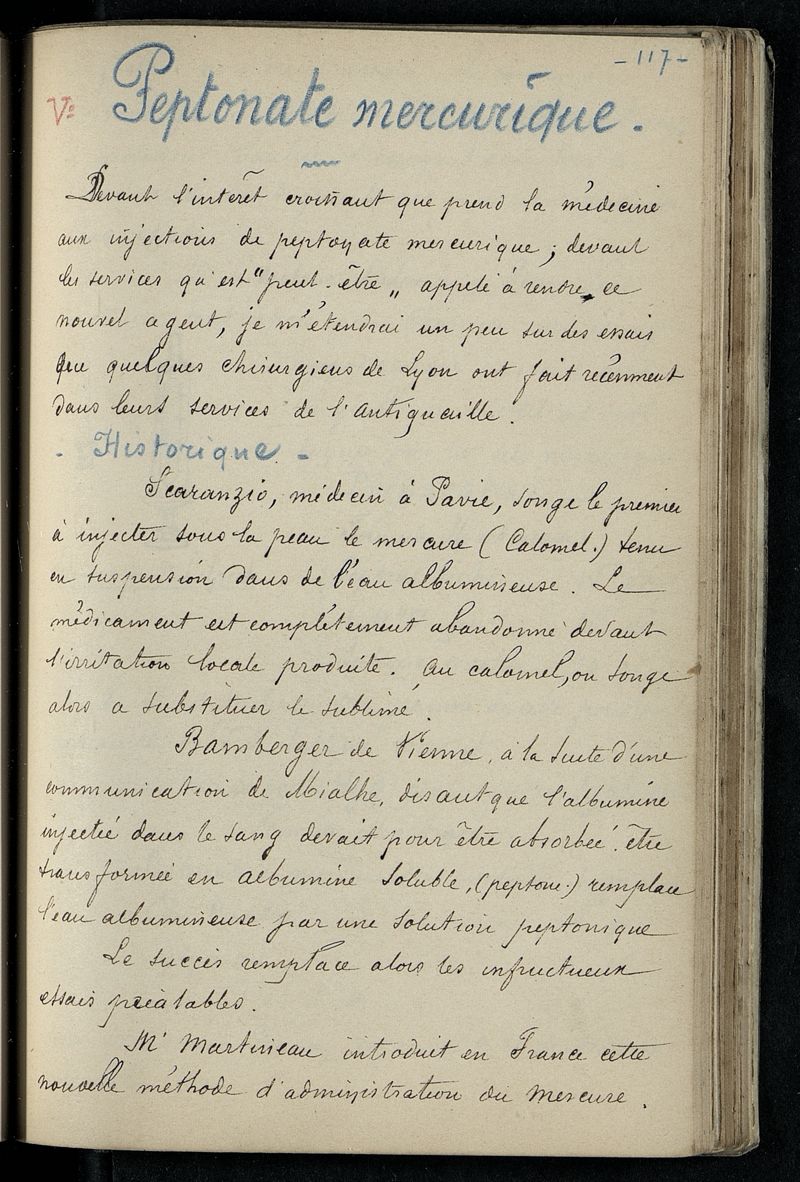 - 117 -
Vº Peptonate mercurique.
Devant l'intérêt croissant que prend la médecine
aux injections de peptonate mercurique; devant
les services qu'est "peut-être" appelé à rendre ce
nouvel agent, je m'étendrai un peu sur des essais
que quelques chirurgiens de Lyon ont fait récemment
dans leurs services de l'Antiquaille.
- Historique -
Scaranzio, médecin à Pavie, songe le premier
à injecter sous la peau le mercure (Calomel.) tenu
en suspension dans de l'eau albumineuse. Le
médicament est complétement abandonné devant
l'irritation locale produite. Au calomel, on songe
alors a substituer le sublimé.
Bamberger de Vienne, à la suite d'une
communication de Mialhe, disant que l'albumine
injectée dans le sang devait pour être absorbée être
transformée en albumine soluble, (peptone.) remplace
l'eau albumineuse par une solution peptonique
Le succès remplace alors les infructueux
essais préalables.
Mr Martineau introduit en France cette
nouvelle méthode d'administration du mercure.